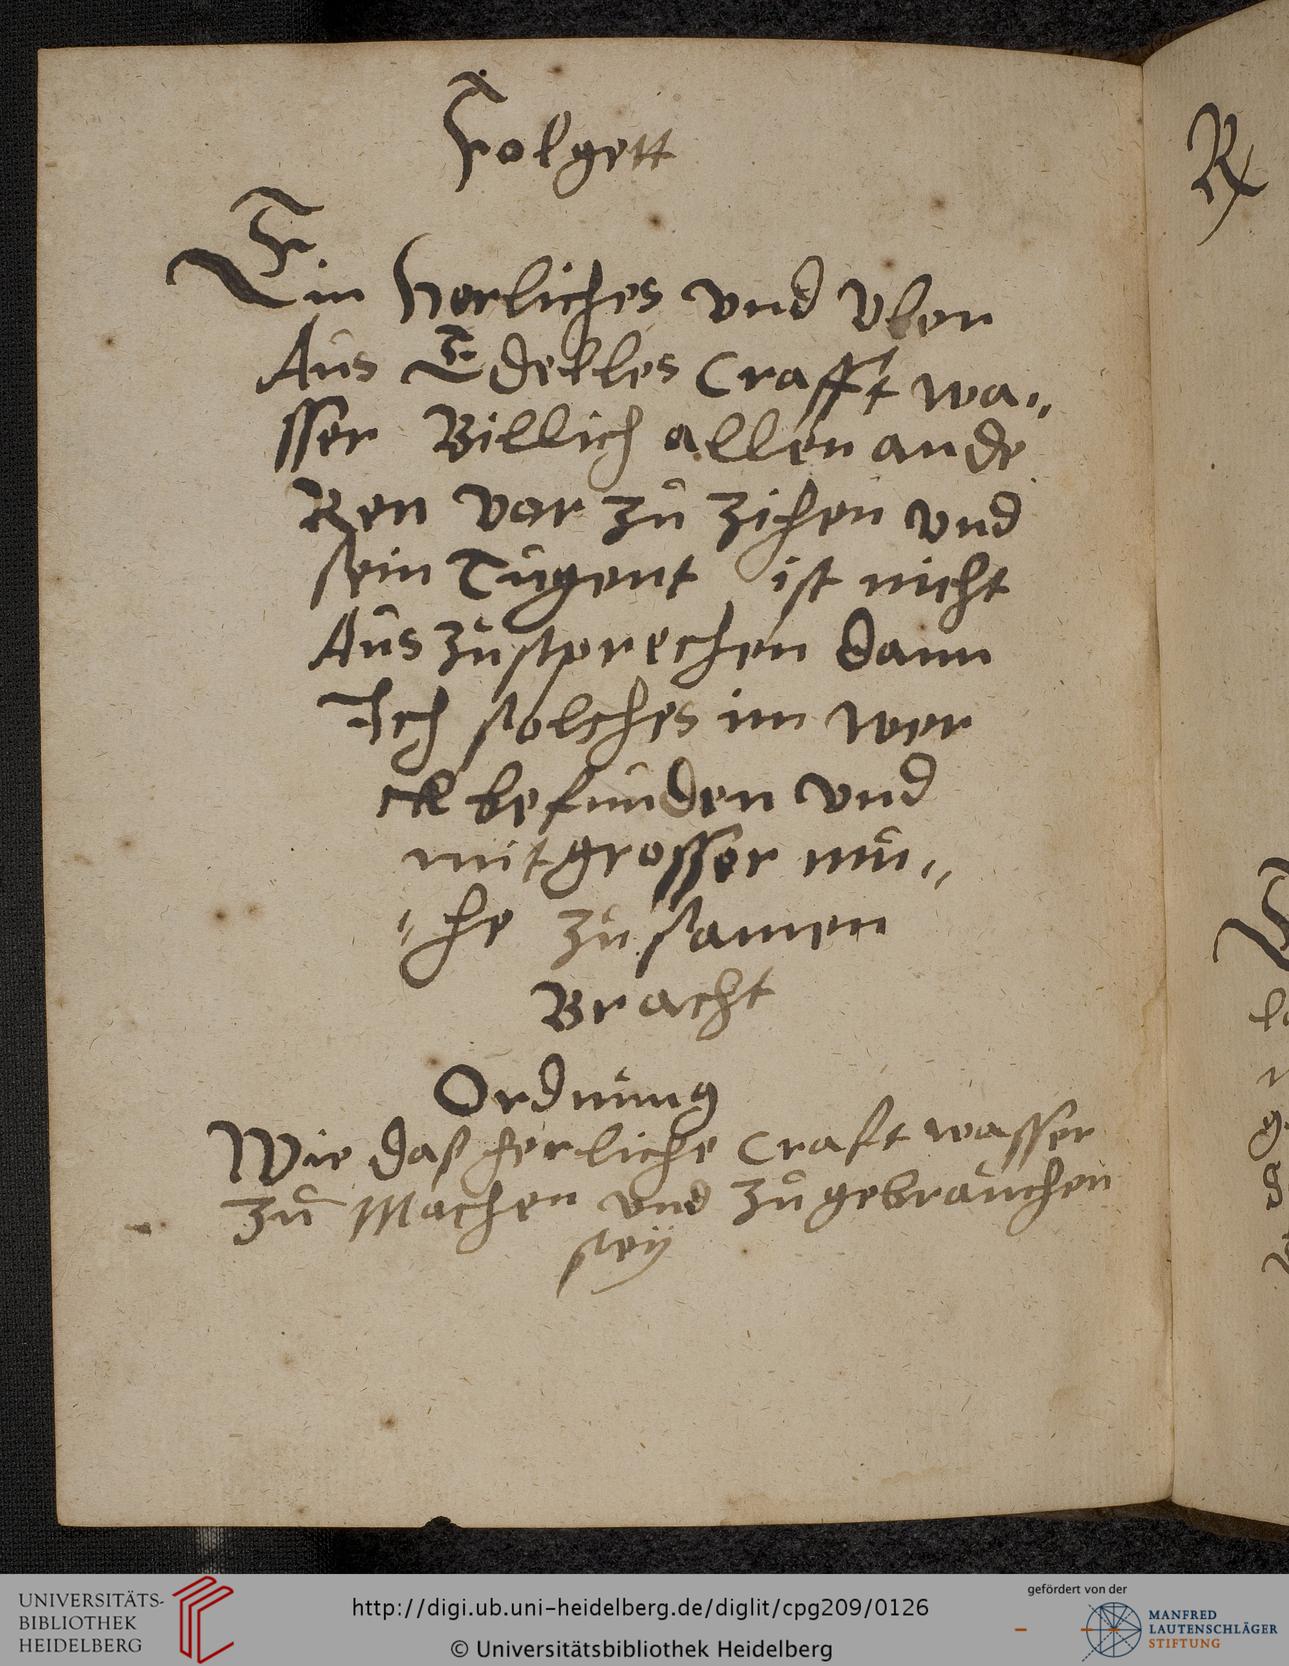 Folgett
Ein Herliches vnd Vber
Aus Edelles Crafft wa„
sser Billich allen ande
Ren vor zu zihen vnd
sein Tugent ist nicht
Aus zusprechen dann
Ich solches im wer
ck befunden vnd
mit grosser mü„
„he zu samen
Bracht
Ordnung
Wie daß herliche Craft wasser
zu Machen vnd zu gebrauchen
sey
UNIVERSITÄTS-
BIBLIOTHEK
HEIDELBERG
http://digi.ub.uni-heidelberg.de/diglit/cpg209/0126
© Universitätsbibliothek Heidelberg
gefördert von der
MANFRED
LAUTENSCHLÄGER
STIFTUNG